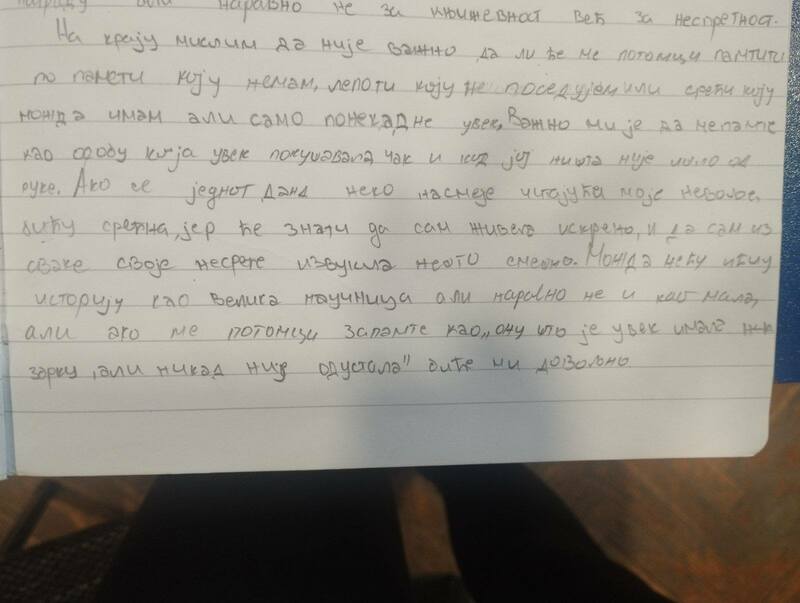 награду али наравно не за књижевност већ за неспретност.
На крају мислим да није важно да ли ће ме потомци памтити
по памети коју немам, лепоти коју не поседујем или срећи коју
можда имам али само понекад не увек. Важно ми је да ме памте
као особу која увек покушавала чак и кад јој ништа није ишло од
руке. Ако се једног дана неко насмеје читајући моје невоље,
бићу срећна, јер ће знати да сам живела искрено, и да сам из
сваке своје несреће извукла нешто смешно. Можда нећу ићи у
историју као велика научница али наравно не и као мала,
али ако ме потомци запамте као „ону што је увек имала
зарку, али никад није одустала" биће ми довољно.